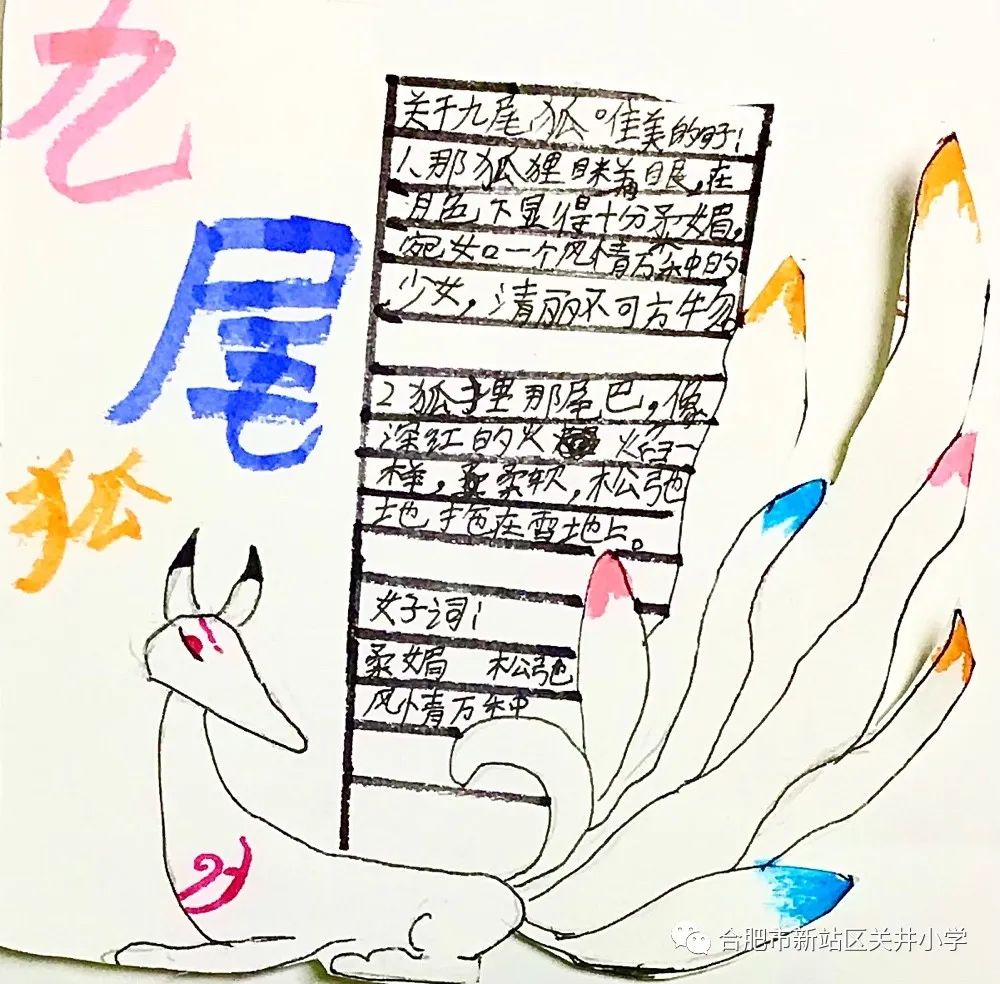 九
尾
狐
关于九尾狐唯美的句子:
1、那狐狸眯着眼,在
月色下显得十分柔媚,
宛如一个风情万种的
少女,清丽不可方物
2狐狸那尾巴,像
深红的火焰一
样,柔软,松弛
地拖在雪地上。
好词:
柔媚 松弛
风情万种
合肥市新站区关井小学